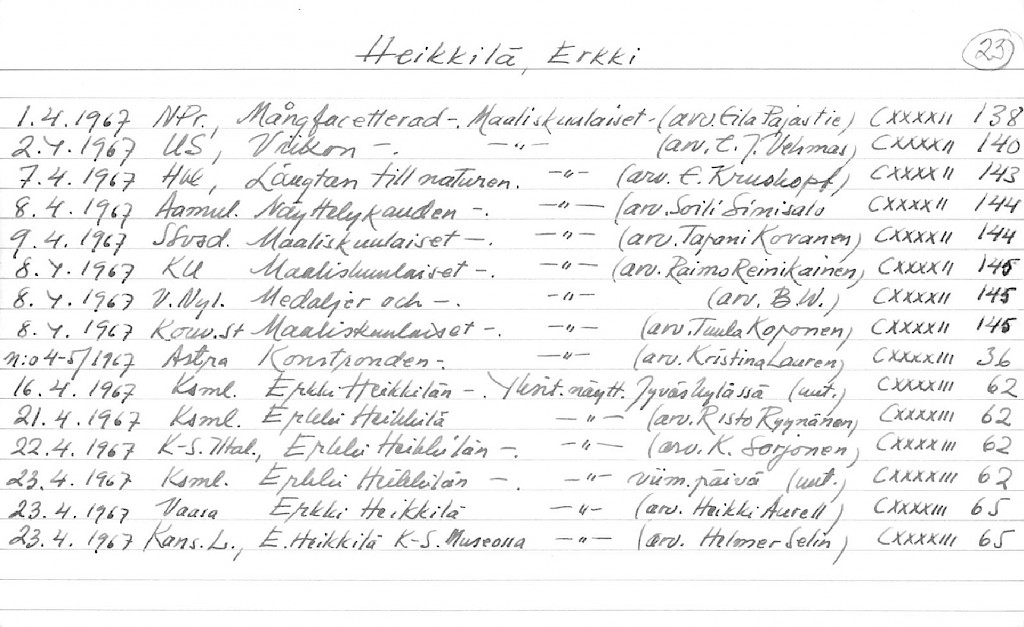 Heikkilä, Erkki
23
1.4.1967 NPr., Mångfacetterad -. Maaliskuulaiset - (arv. Eila Pajastie) CXXXXII 138
2.4.1967 US, Viikon -. -"- (arv. E.J. Vehmas) CXXXXII 140
7.4.1967 Hbl, Längtan till naturen. -"- (arv. E. Kruskopf) CXXXXII 143
8.4.1967 Aamul. Näyttelykauden -. -"- (arv. Soili Sinisalo CXXXXII 144
9.4.1967 SSvsd. Maaliskuulaiset -. -"- (arv. Tapani Kovanen) CXXXXII 144
8.4.1967 KU Maaliskuulaiset -. -"- (arv. Raimo Reinikainen) CXXXXII 145
8.4.1967 V.Nyl. Medaljer och -. -"- (arv. B.W.) CXXXXII 145
8.4.1967 Kouv.st Maaliskuulaiset -. -"- (arv. Tuula Koponen) CXXXXII 145
n:o 4-5/1967 Astra Konstronden -. -"- (arv. Kristina Lauren) CXXXXIII 36
16.4.1967 Ksml. Erkki Heikkilän -. Yksit. näytt. Jyväskylässä (uut.) CXXXXIII 62
21.4.1967 Ksml. Erkki Heikkilä -"- (arv. Risto Rynnänen) CXXXXIII 62
22.4.1967 K-S. Iltal., Erkki Heikkilän -. -"- (arv. K. Sorjonen) CXXXXIII 62
23.4.1967 Ksml. Erkki Heikkilän -. -"- viim. päivä (uut.) CXXXXIII 62
23.4.1967 Vaasa Erkki Heikkilä -"- (arv. Heikki Aurell) CXXXXIII 65
23.4.1967 Kans.L., E. Heikkilä K-S. Museossa -"- (arv. Helmer Selin) CXXXXIII 65